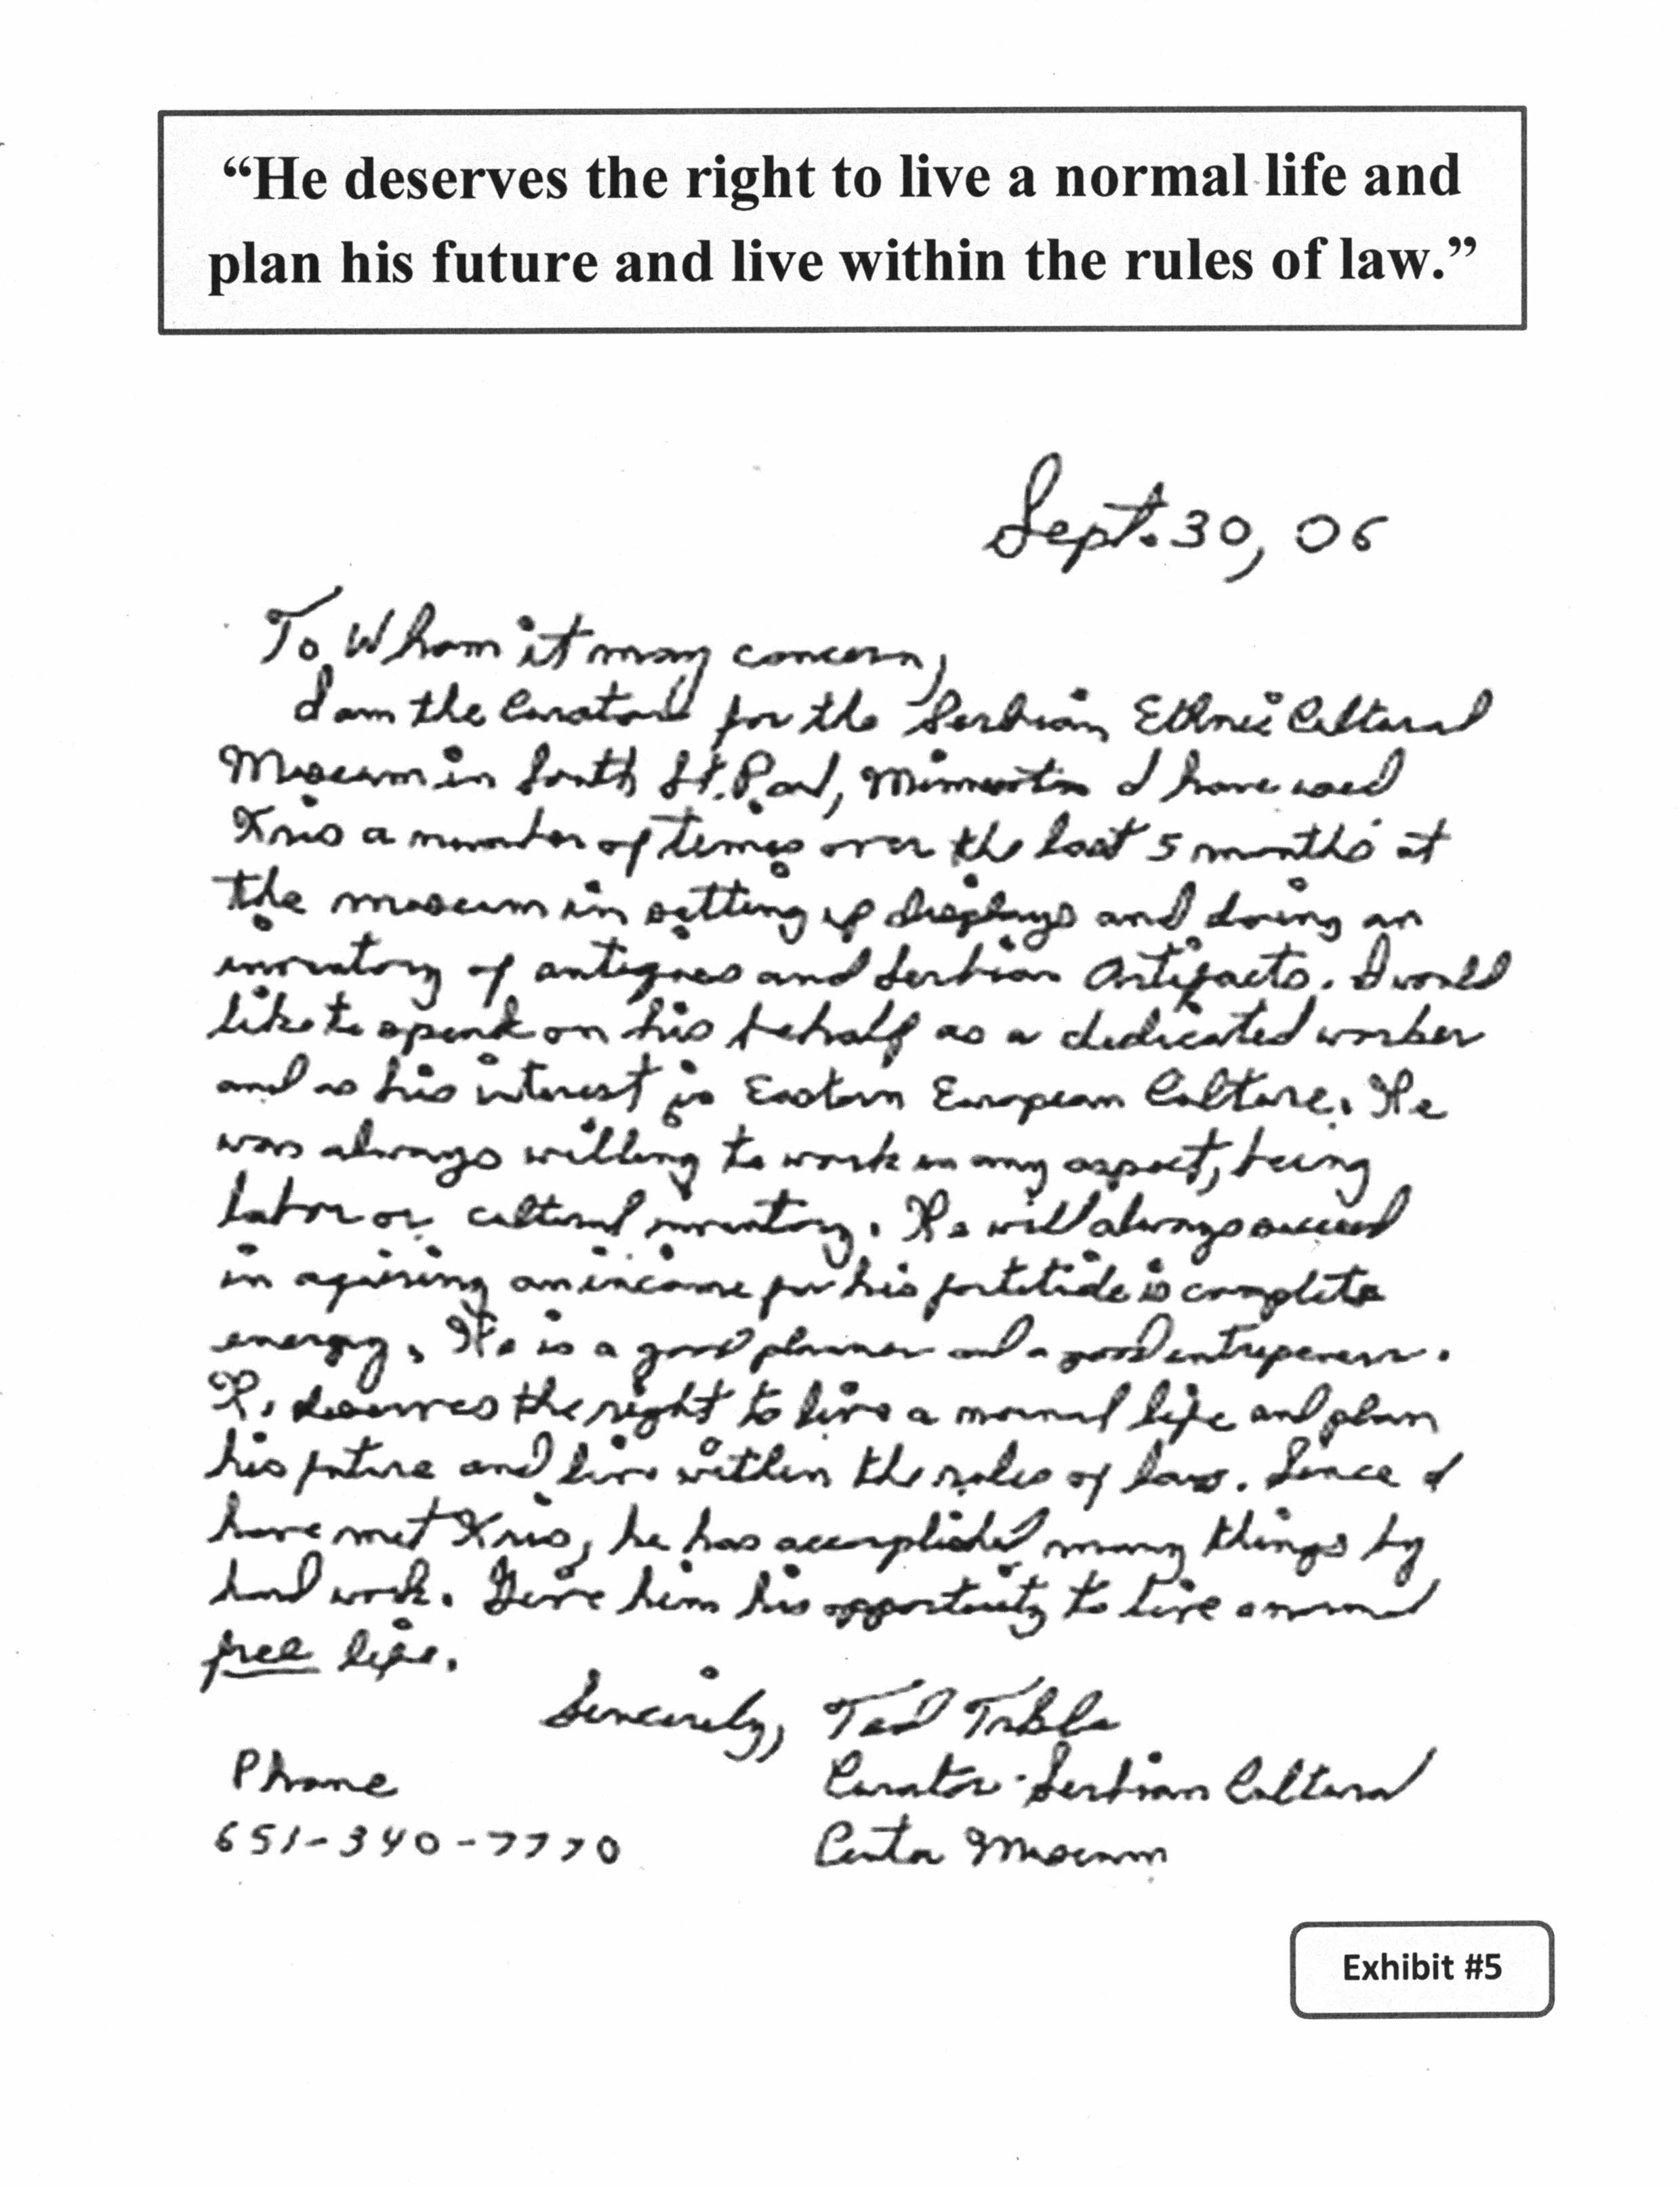 “He deserves the right to live a normal life and
plan his future and live within the rules of law.”
Sept. 30, 06
To Whom it may concern,
I am the Curator for the Serbian Ethnic Cultural
Museum in South St. Paul, Minnesota I have used
Kris a number of times over the last 5 months at
the museum in setting up displays and doing an
inventory of antiques and Serbian Artifacts. I would
like to speak on his behalf as a dedicated worker
and as his interest in Eastern European Culture. He
was always willing to work in any aspect, being
labor or cultural inventory. He will always succeed
in aquiring an income for his fortitude is complete
energy. He is a good planner and a good entrepeneur.
He deserves the right to live a normal life and plan
his future and live within the rules of law. Since I
have met Kris, he has accomplished many things by
hard work. Give him his opportunity to live a normal
free life.
Sincerely, Ted
Phone
Curator - Serbian Cultural
651-340-7770
Center Museum
Exhibit #5